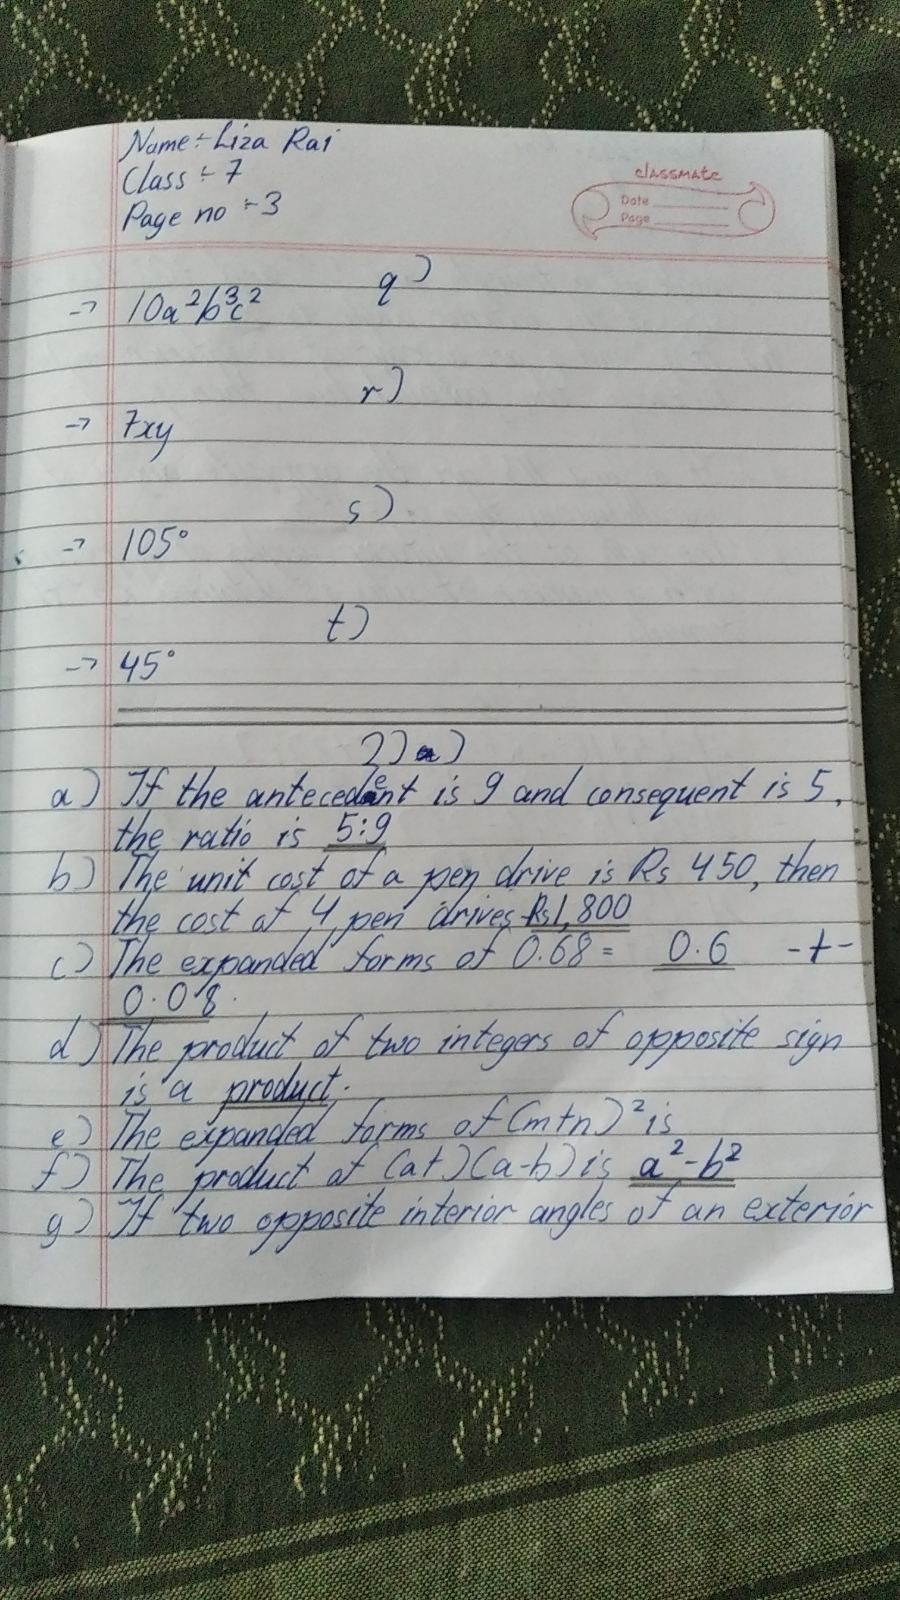 Name :- Liza Rai
Class :- 7
Page no :- 3
classmate
Date
Page
q)
→ 10a²b³c²
r)
→ 7xy
s)
→ 105°
t)
→ 45°
2) a)
a) If the antecedent is 9 and consequent is 5,
the ratio is 5:9
b) The unit cost of a pen drive is Rs 450, then
the cost of 4 pen drives Rs1,800
c) The expanded forms of 0.68 = 0.6 -+-
0.08.
d) The product of two integers of opposite sign
is a product.
e) The expanded forms of (m+n)² is
f) The product of (a+)(a-b) is a²-b²
g) If two opposite interior angles of an exterior